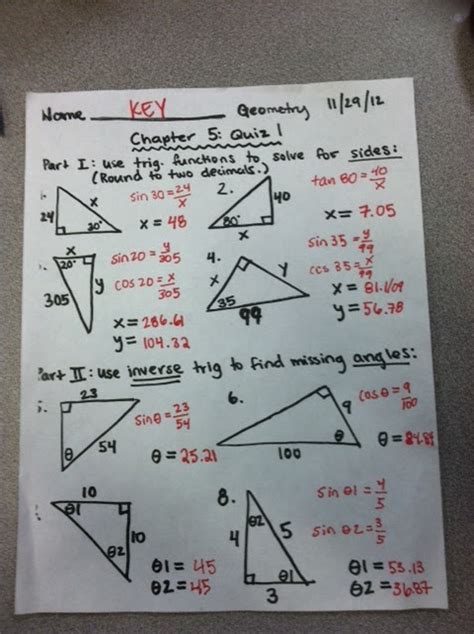 Name KEY Geometry 11/29/12
Chapter 5: Quiz 1
Part I: use trig. functions to solve for sides:
(Round to two decimals.)
24 x 30°
sin 30 = 24/x
x = 48
2. 40 80° x
tan 80 = 40/x
x = 7.05
x 20° 305 y
sin 20 = y/305
cos 20 = x/305
x = 286.61
y = 104.32
4. x y 35 99
sin 35 = y/99
cos 35 = x/99
x = 81.109
y = 56.78
Part II: use inverse trig to find missing angles:
23 θ 54
sin θ = 23/54
θ = 25.21
6. 9 θ 100
cos θ = 9/100
θ = 84.84
10 θ1 10 θ2
θ1 = 45
θ2 = 45
8. θ2 4 5 θ1 3
sin θ1 = 4/5
sin θ2 = 3/5
θ1 = 53.13
θ2 = 36.87